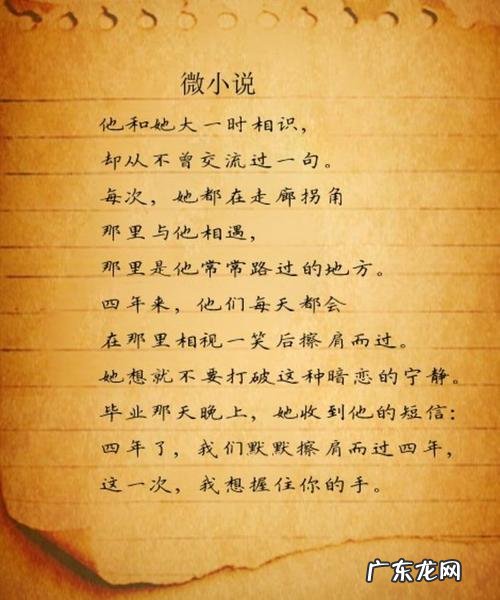 微小说
他和她大一时相识，
却从不曾交流过一句。
每次，她都在走廊拐角
那里与他相遇，
那里是他常常路过的地方。
四年来，他们每天都会
在那里相视一笑后擦肩而过。
她想就不要打破这种暗恋的宁静。
毕业那天晚上，她收到他的短信：
四年了，我们默默擦肩而过四年，
这一次，我想握住你的手。
广东龙网